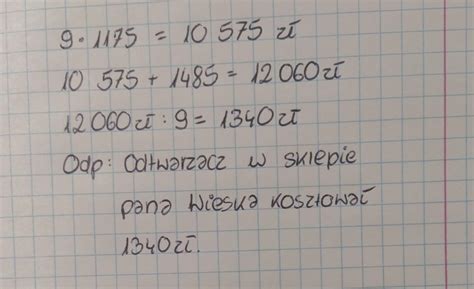 9 · 1175 = 10 575 zł
10 575 + 1485 = 12 060 zł
12 060 zł : 9 = 1340 zł
Odp: Odtwarzacz w sklepie
pana Wieska kosztował
1340 zł.